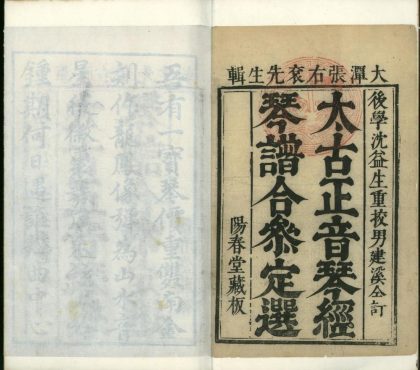 大潭張右袞先生輯
後學沈益生重挍男建溪仝訂
太古正音琴經
琴譜合參定選
陽春堂藏板
吾有一寶琴價重雙南金
刻作龍鳳像
為山水音
鍾期何日遇
心